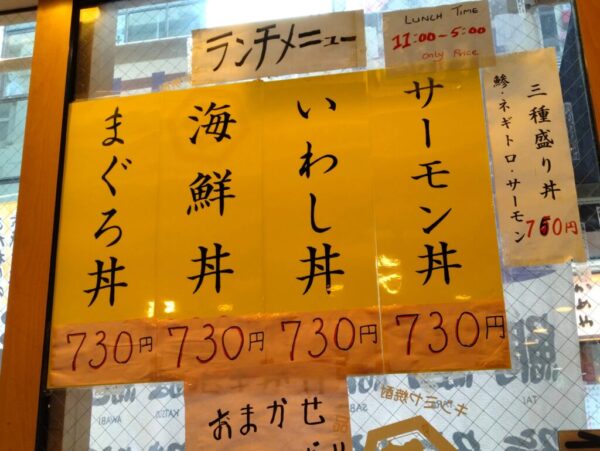 ランチメニュー
LUNCH TIME
11:00-5:00
only Price
三種盛り丼
鯵・ネギトロ・サーモン
760円
サーモン丼
730円
いわし丼
730円
海鮮丼
730円
まぐろ丼
730円
おまかせ